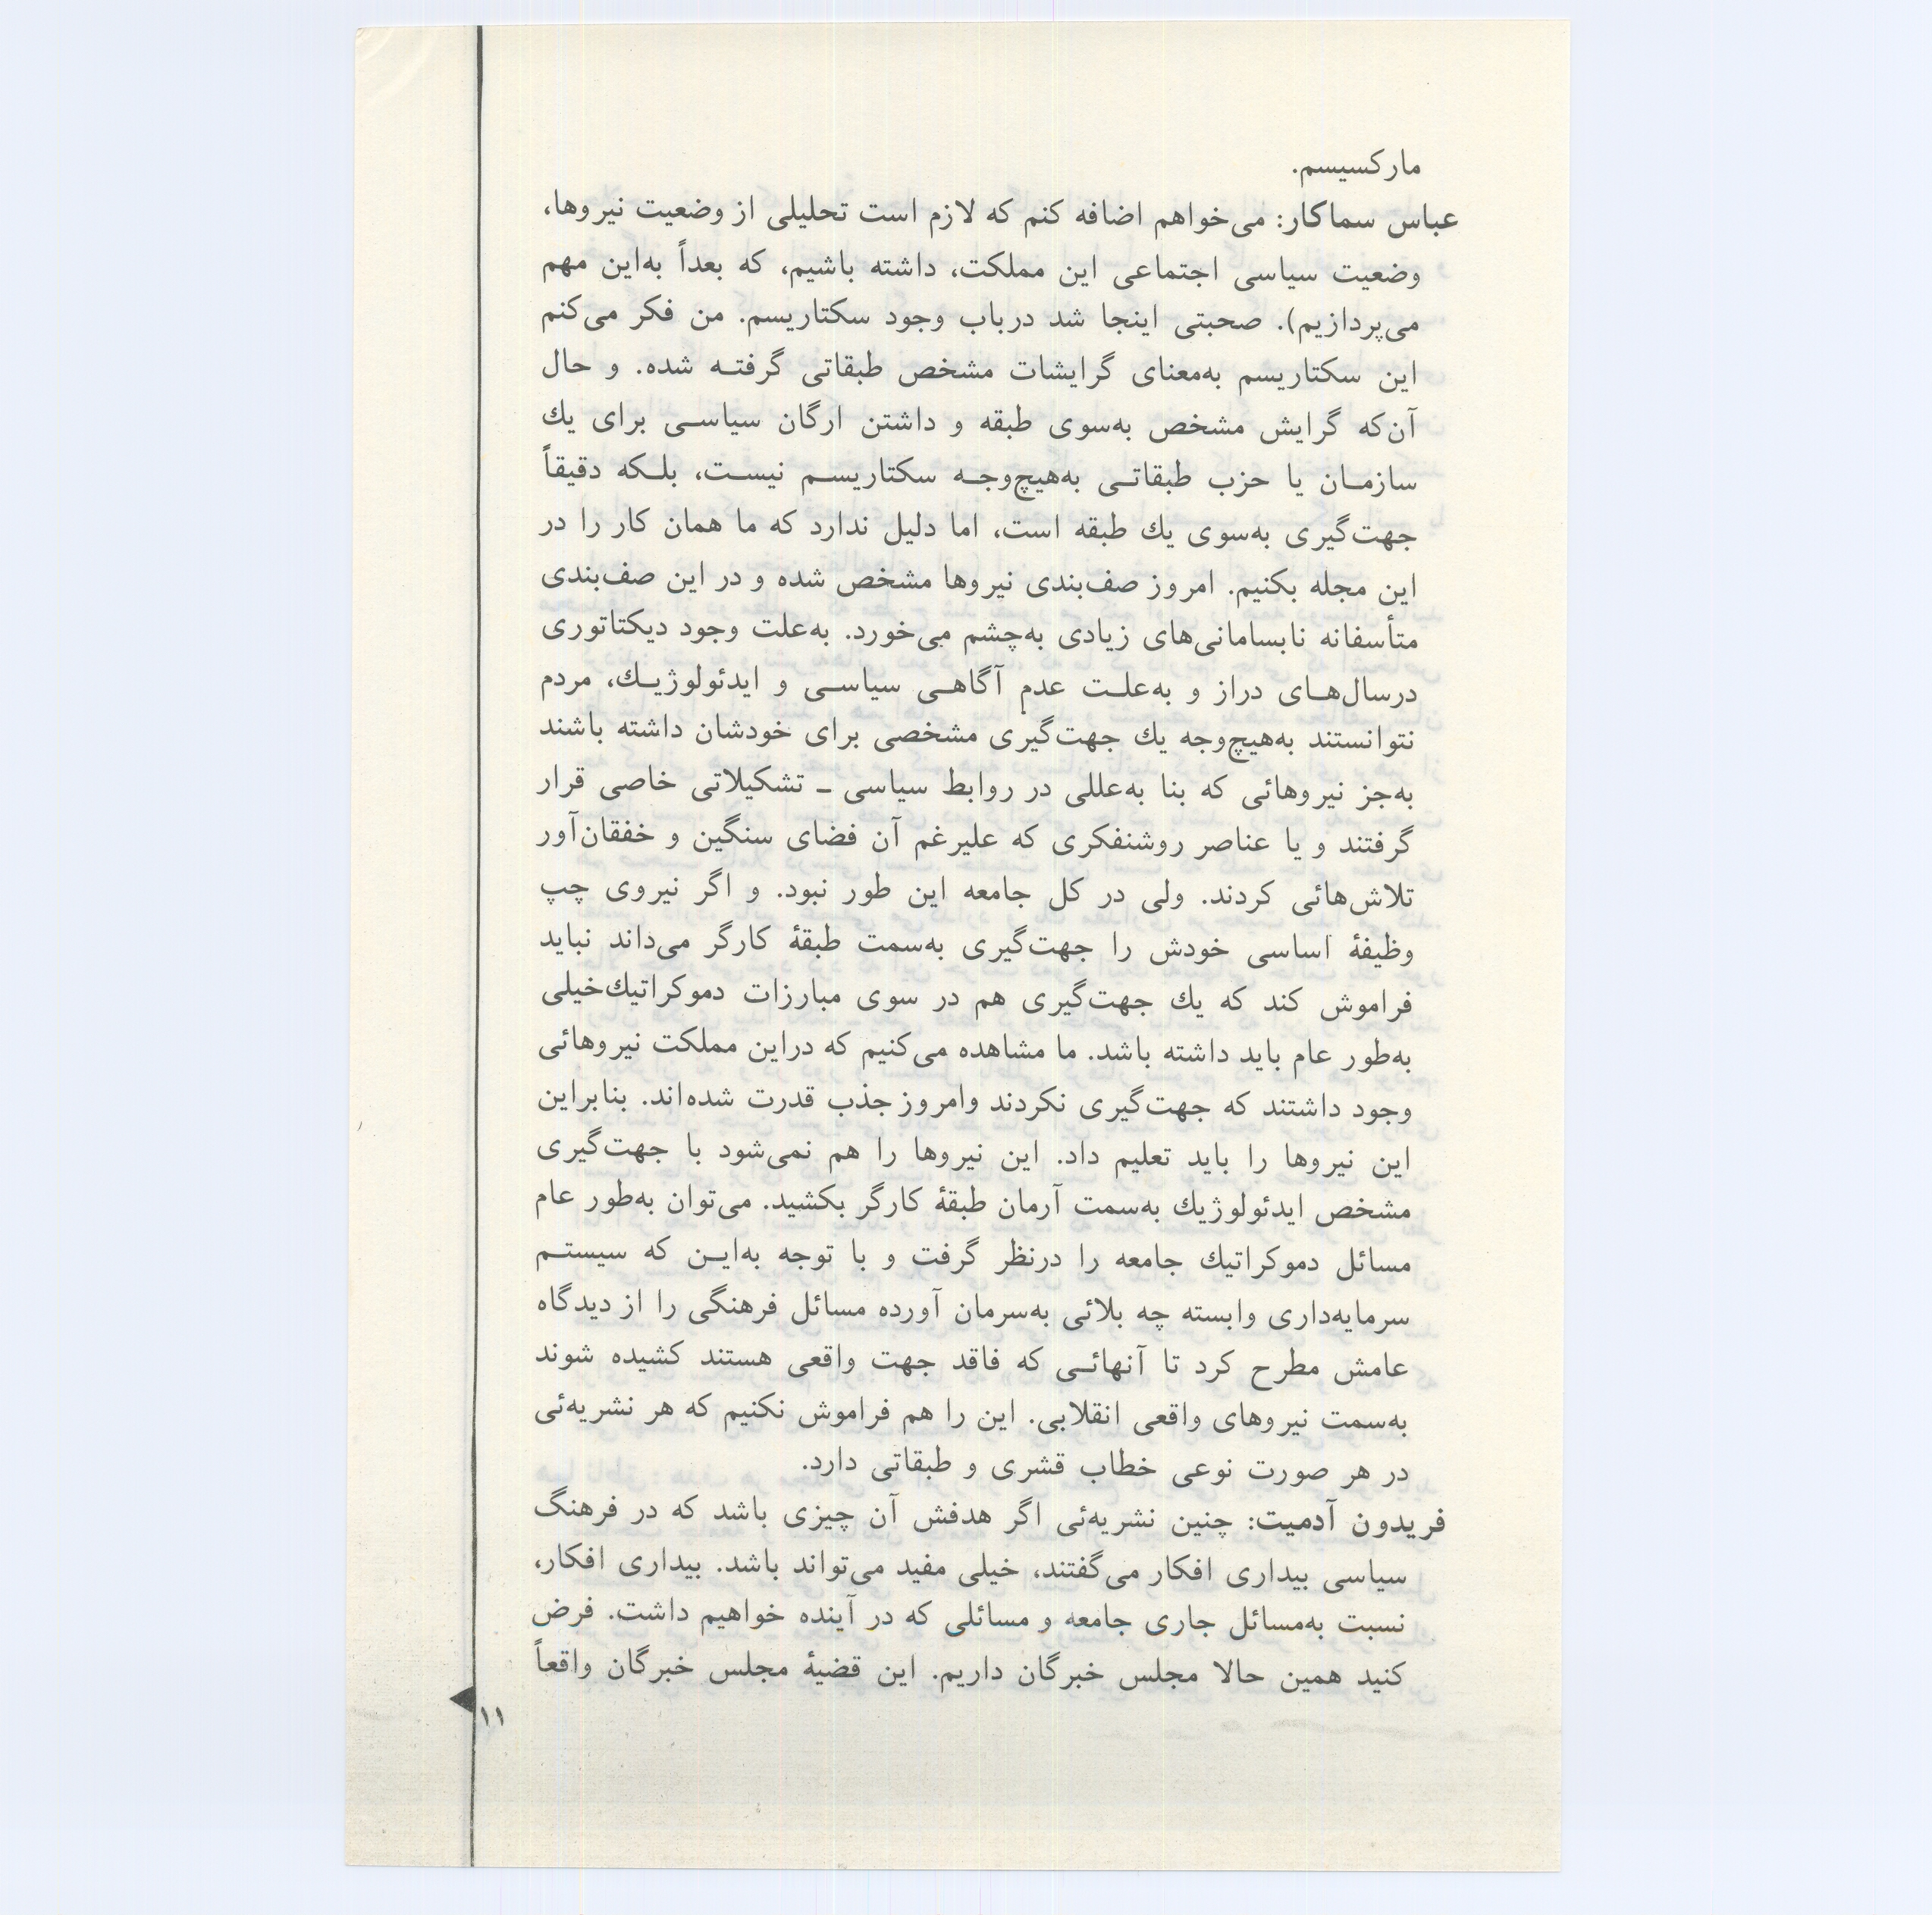 مارکسیسم.
عباس سماکار: می‌خواهم اضافه کنم که لازم است تحلیلی از وضعیت نیروها،
وضعیت سیاسی اجتماعی این مملکت، داشته باشیم، که بعداً به‌این مهم
می‌پردازیم). صحبتی اینجا شد درباب وجود سکتاریسم. من فکر می‌کنم
این سکتاریسم به‌معنای گرایشات مشخص طبقاتی گرفتـه شده. و حال
آن‌که گرایش مشخص به‌سوی طبقه و داشتن ارگان سیاسـی برای یك
سازمـان یا حزب طبقاتـی به‌هیچ‌وجـه سکتاریسـم نیسـت، بلـکه دقیقاً
جهت‌گیری به‌سوی یك طبقه است، اما دلیل ندارد که ما همان کار را در
این مجله بکنیم. امروز صف‌بندی نیروها مشخص شده و در این صف‌بندی
متأسفانه نابسامانی‌های زیادی به‌چشم می‌خورد. به‌علت وجود دیکتاتوری
درسال‌هـای دراز و به‌علـت عدم آگاهـی سیاسـی و ایدئولوژیـك، مردم
نتوانستند به‌هیچ‌وجه یك جهت‌گیری مشخصی برای خودشان داشته باشند
به‌جز نیروهائی که بنا به‌عللی در روابط سیاسی ـ تشکیلاتی خاصی قرار
گرفتند و یا عناصر روشنفکری که علیرغم آن فضای سنگین و خفقان‌آور
تلاش‌هائی کردند. ولی در کل جامعه این طور نبود. و اگر نیروی چپ
وظیفۀ اساسی خودش را جهت‌گیری به‌سمت طبقۀ کارگر می‌داند نباید
فراموش کند که یك جهت‌گیری هم در سوی مبارزات دموکراتیك‌خیلی
به‌طور عام باید داشته باشد. ما مشاهده می‌کنیم که دراین مملکت نیروهائی
وجود داشتند که جهت‌گیری نکردند وامروز جذب قدرت شده‌اند. بنابراین
این نیروها را باید تعلیم داد. این نیروها را هم نمی‌شود با جهت‌گیری
مشخص ایدئولوژیك به‌سمت آرمان طبقۀ کارگر بکشید. می‌توان به‌طور عام
مسائل دموکراتیك جامعه را درنظر گرفت و با توجه به‌ایـن که سیستـم
سرمایه‌داری وابسته چه بلائی به‌سرمان آورده مسائل فرهنگی را از دیدگاه
عامش مطرح کرد تا آنهائـی که فاقد جهت واقعی هستند کشیده شوند
به‌سمت نیروهای واقعی انقلابی. این را هم فراموش نکنیم که هر نشریه‌ئی
در هر صورت نوعی خطاب قشری و طبقاتی دارد.
فریدون آدمیت: چنین نشریه‌ئی اگر هدفش آن چیزی باشد که در فرهنگ
سیاسی بیداری افکار می‌گفتند، خیلی مفید می‌تواند باشد. بیداری افکار،
نسبت به‌مسائل جاری جامعه و مسائلی که در آینده خواهیم داشت. فرض
کنید همین حالا مجلس خبرگان داریم. این قضیۀ مجلس خبرگان واقعاً
۱۱